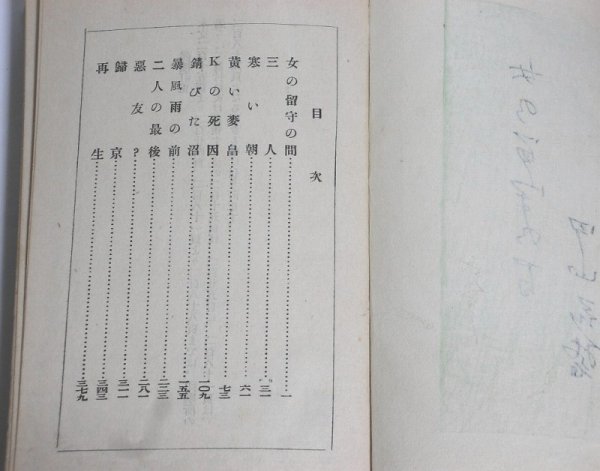 目次
女の留守の間……一
三人……三一
寒い朝……六一
黄い麥畠……七三
Kの死因……一〇九
錆びた沼……一五五
暴風雨の前……二三三
二人の最後……二八一
惡友?……三一一
歸京……三四三
再生……三七九